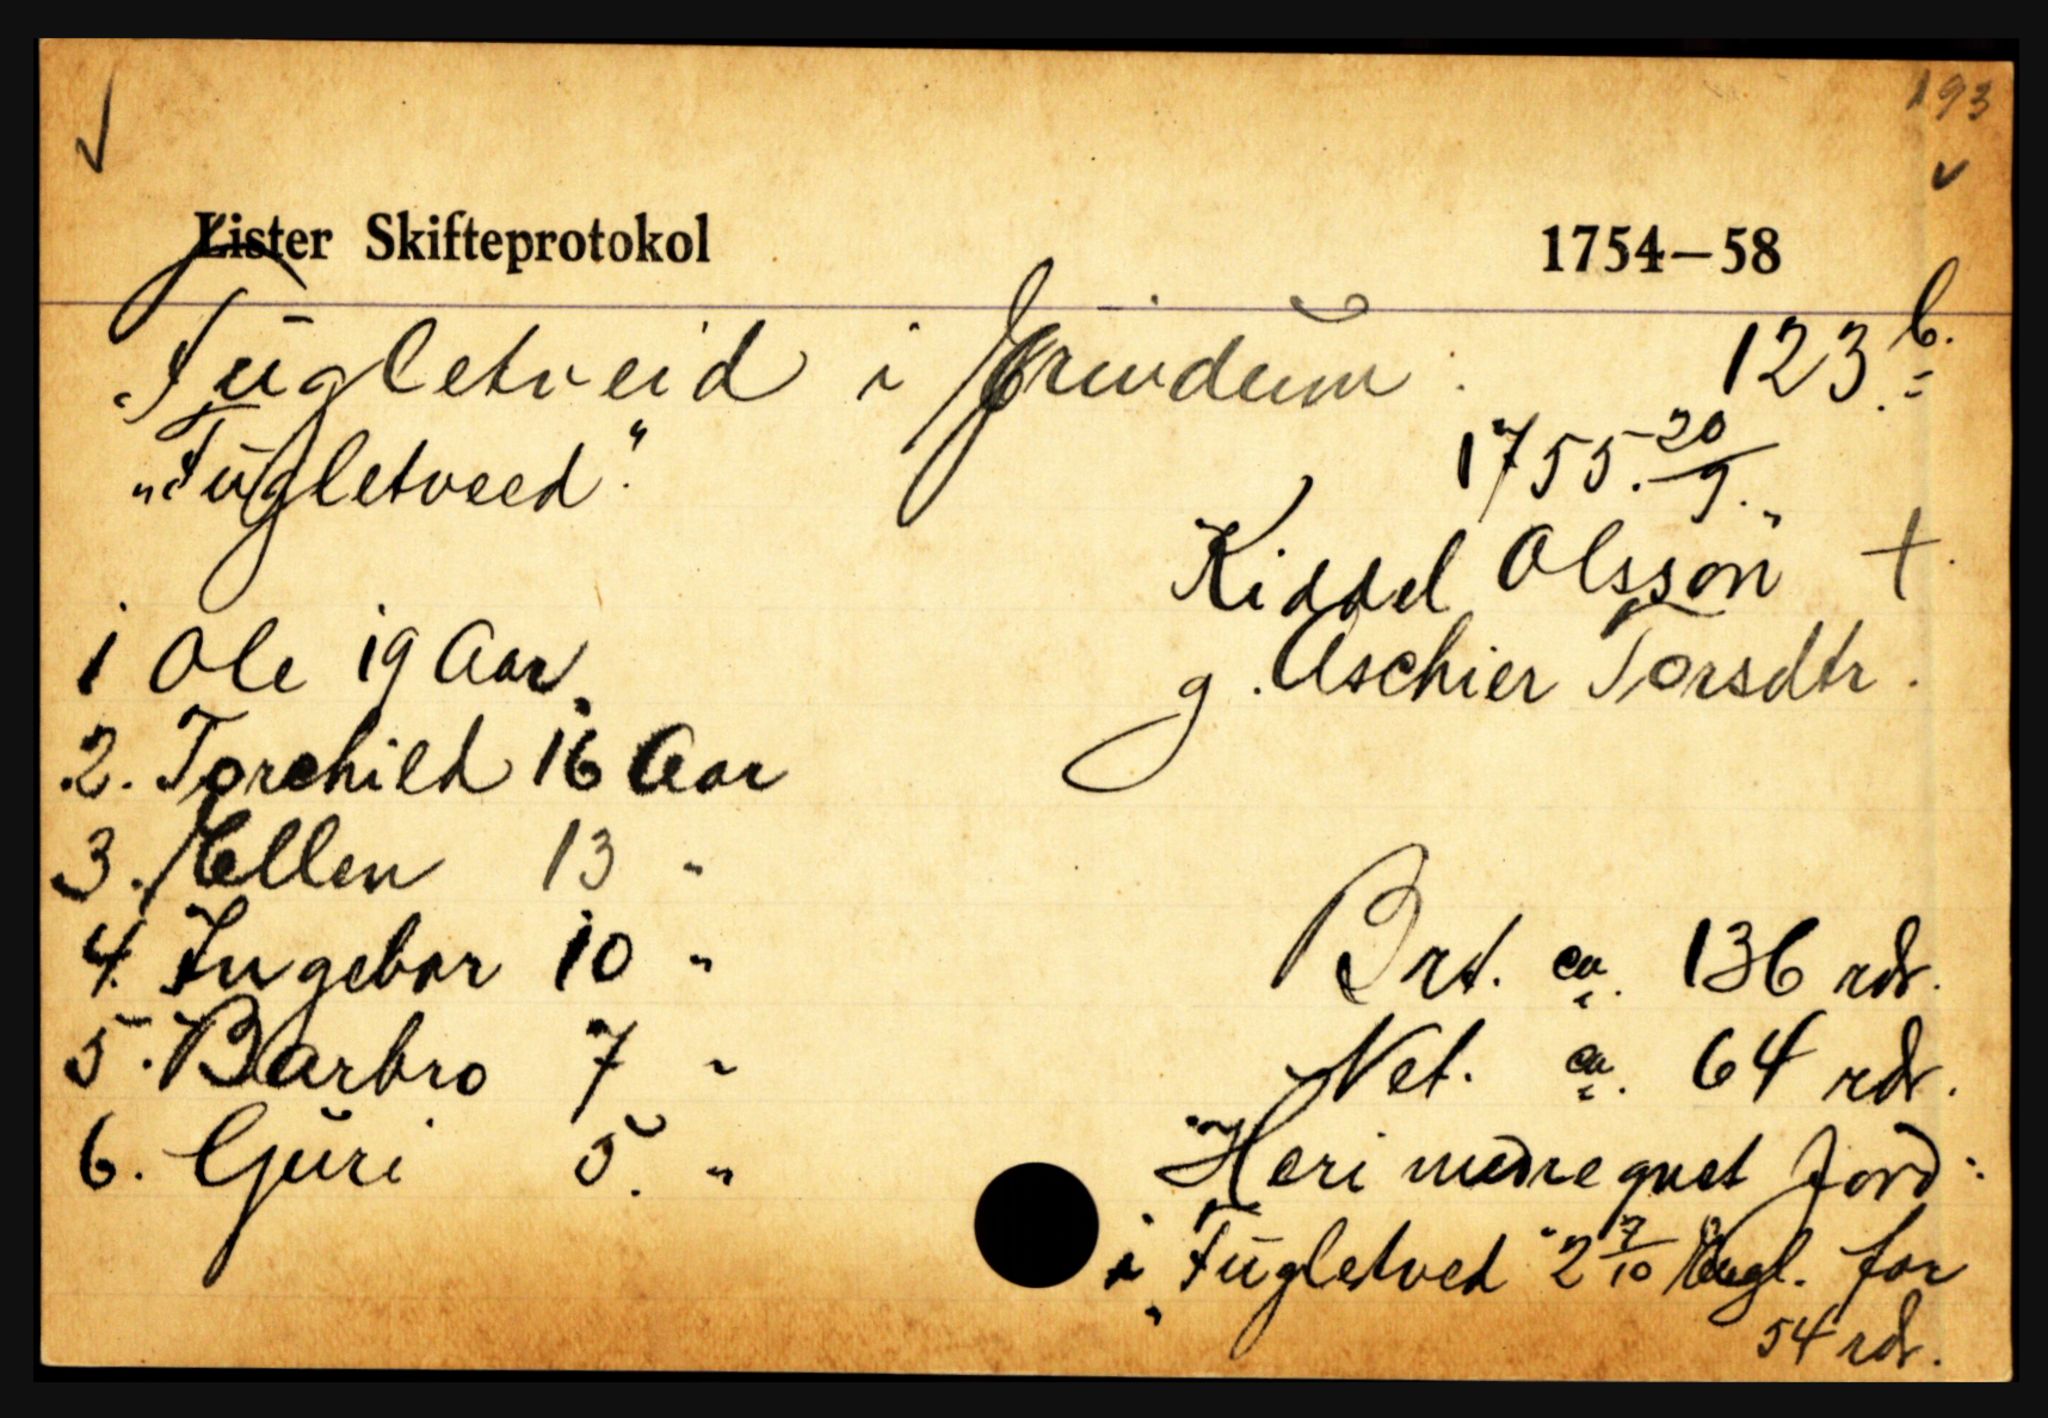 193
Lister Skifteprotokol 1754—58
Fugletveid i Grindum : 123.b.
"Fugletveed". 1755. 20/9.
Kiddel Olsson +
1 Ole 19 Aar. g. Aschier Torsdtr.
2. Torchild 16 Aar
3. Ellen 13 "
4. Ingebor 10 " Brt. ca. 136 rdr.
5. Barbro 7 " Net. ca. 64 rdr.
6. Guri 5. " Heri medregnet Jord:
i Fugletved 2 7/10 Engl. for
54 rdr.